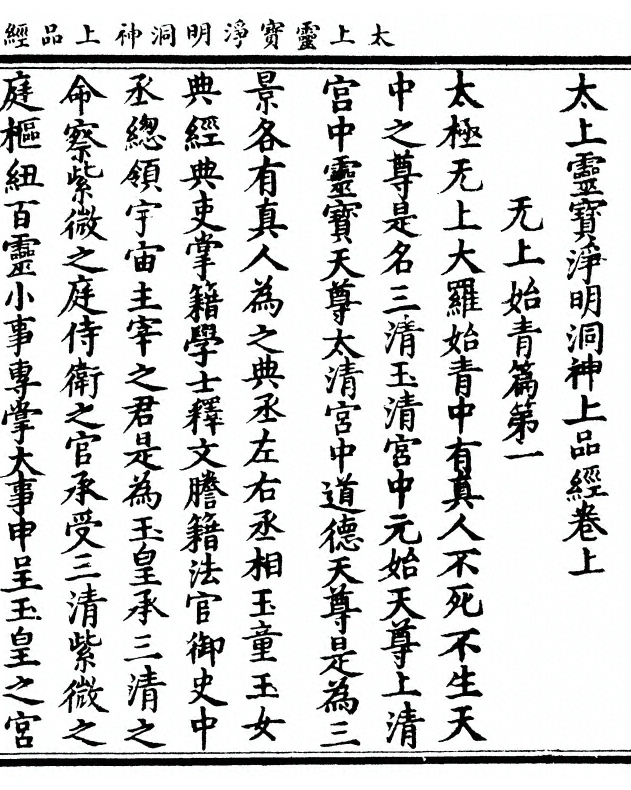 太上靈寶淨明洞神上品經
太上靈寶淨明洞神上品經卷上
无上始青篇第一
太極无上大羅始青中有真人不死不生天
中之尊是名三清玉清宮中元始天尊上清
宮中靈寶天尊太清宮中道德天尊是為三
景各有真人為之典丞左右丞相玉童玉女
典經典吏掌籍學士釋文謄籍法官御史中
丞總領宇宙主宰之君是為玉皇承三清之
命察紫微之庭侍衛之官承受三清紫微之
庭樞紐百靈小事專掌大事申呈玉皇之宮